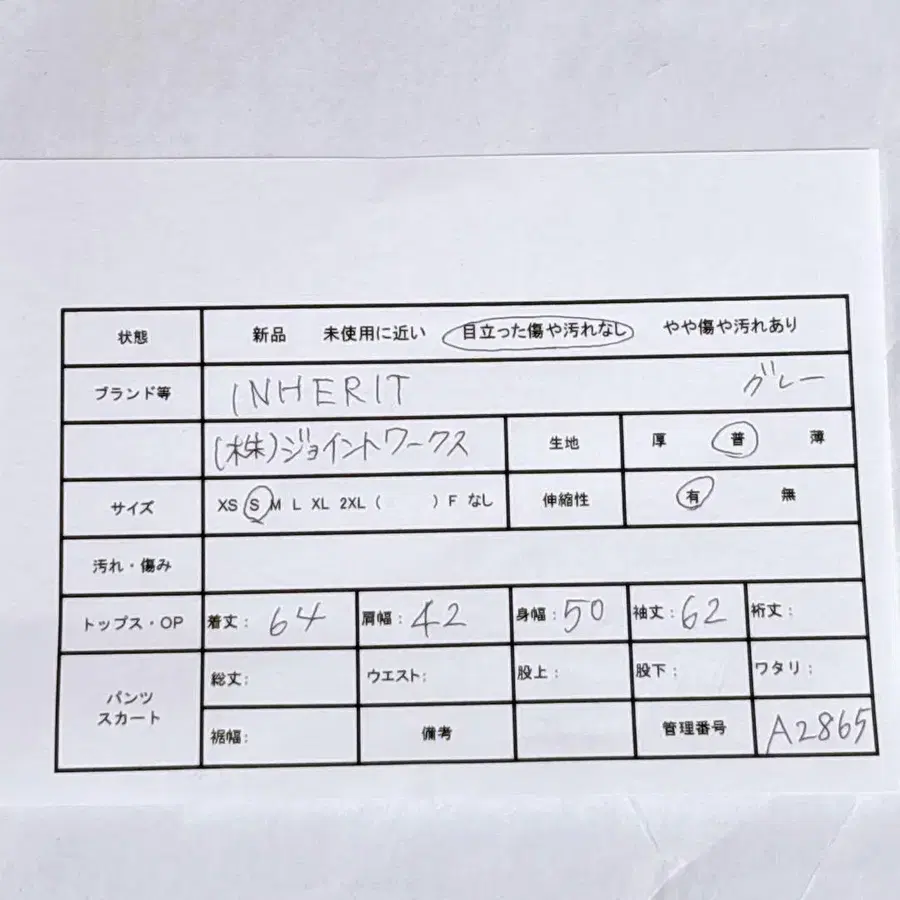 状態 新品 未使用に近い 目立った傷や汚れなし やや傷や汚れあり
ブランド等 INHERIT グレー
(株)ジョイントワークス 生地 厚 普 薄
サイズ XS S M L XL 2XL ( ) F なし 伸縮性 有 無
汚れ・傷み
トップス・OP 着丈: 64 肩幅: 42 身幅: 50 袖丈: 62 裄丈:
パンツ
スカート
総丈: ウエスト: 股上: 股下: ワタリ:
裾幅: 備考 管理番号 A2865